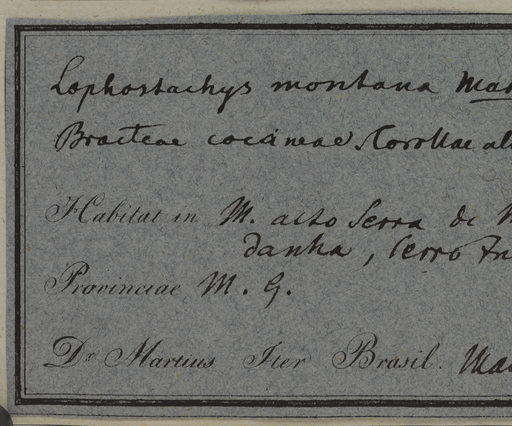 Lophostachys montana Mar
Bracteae coccineae. Corollae al
Habitat in M. alto Serra de M
danha, Serro Fr
Provinciae M. G.
Dr. Martius Iter Brasil. Mar